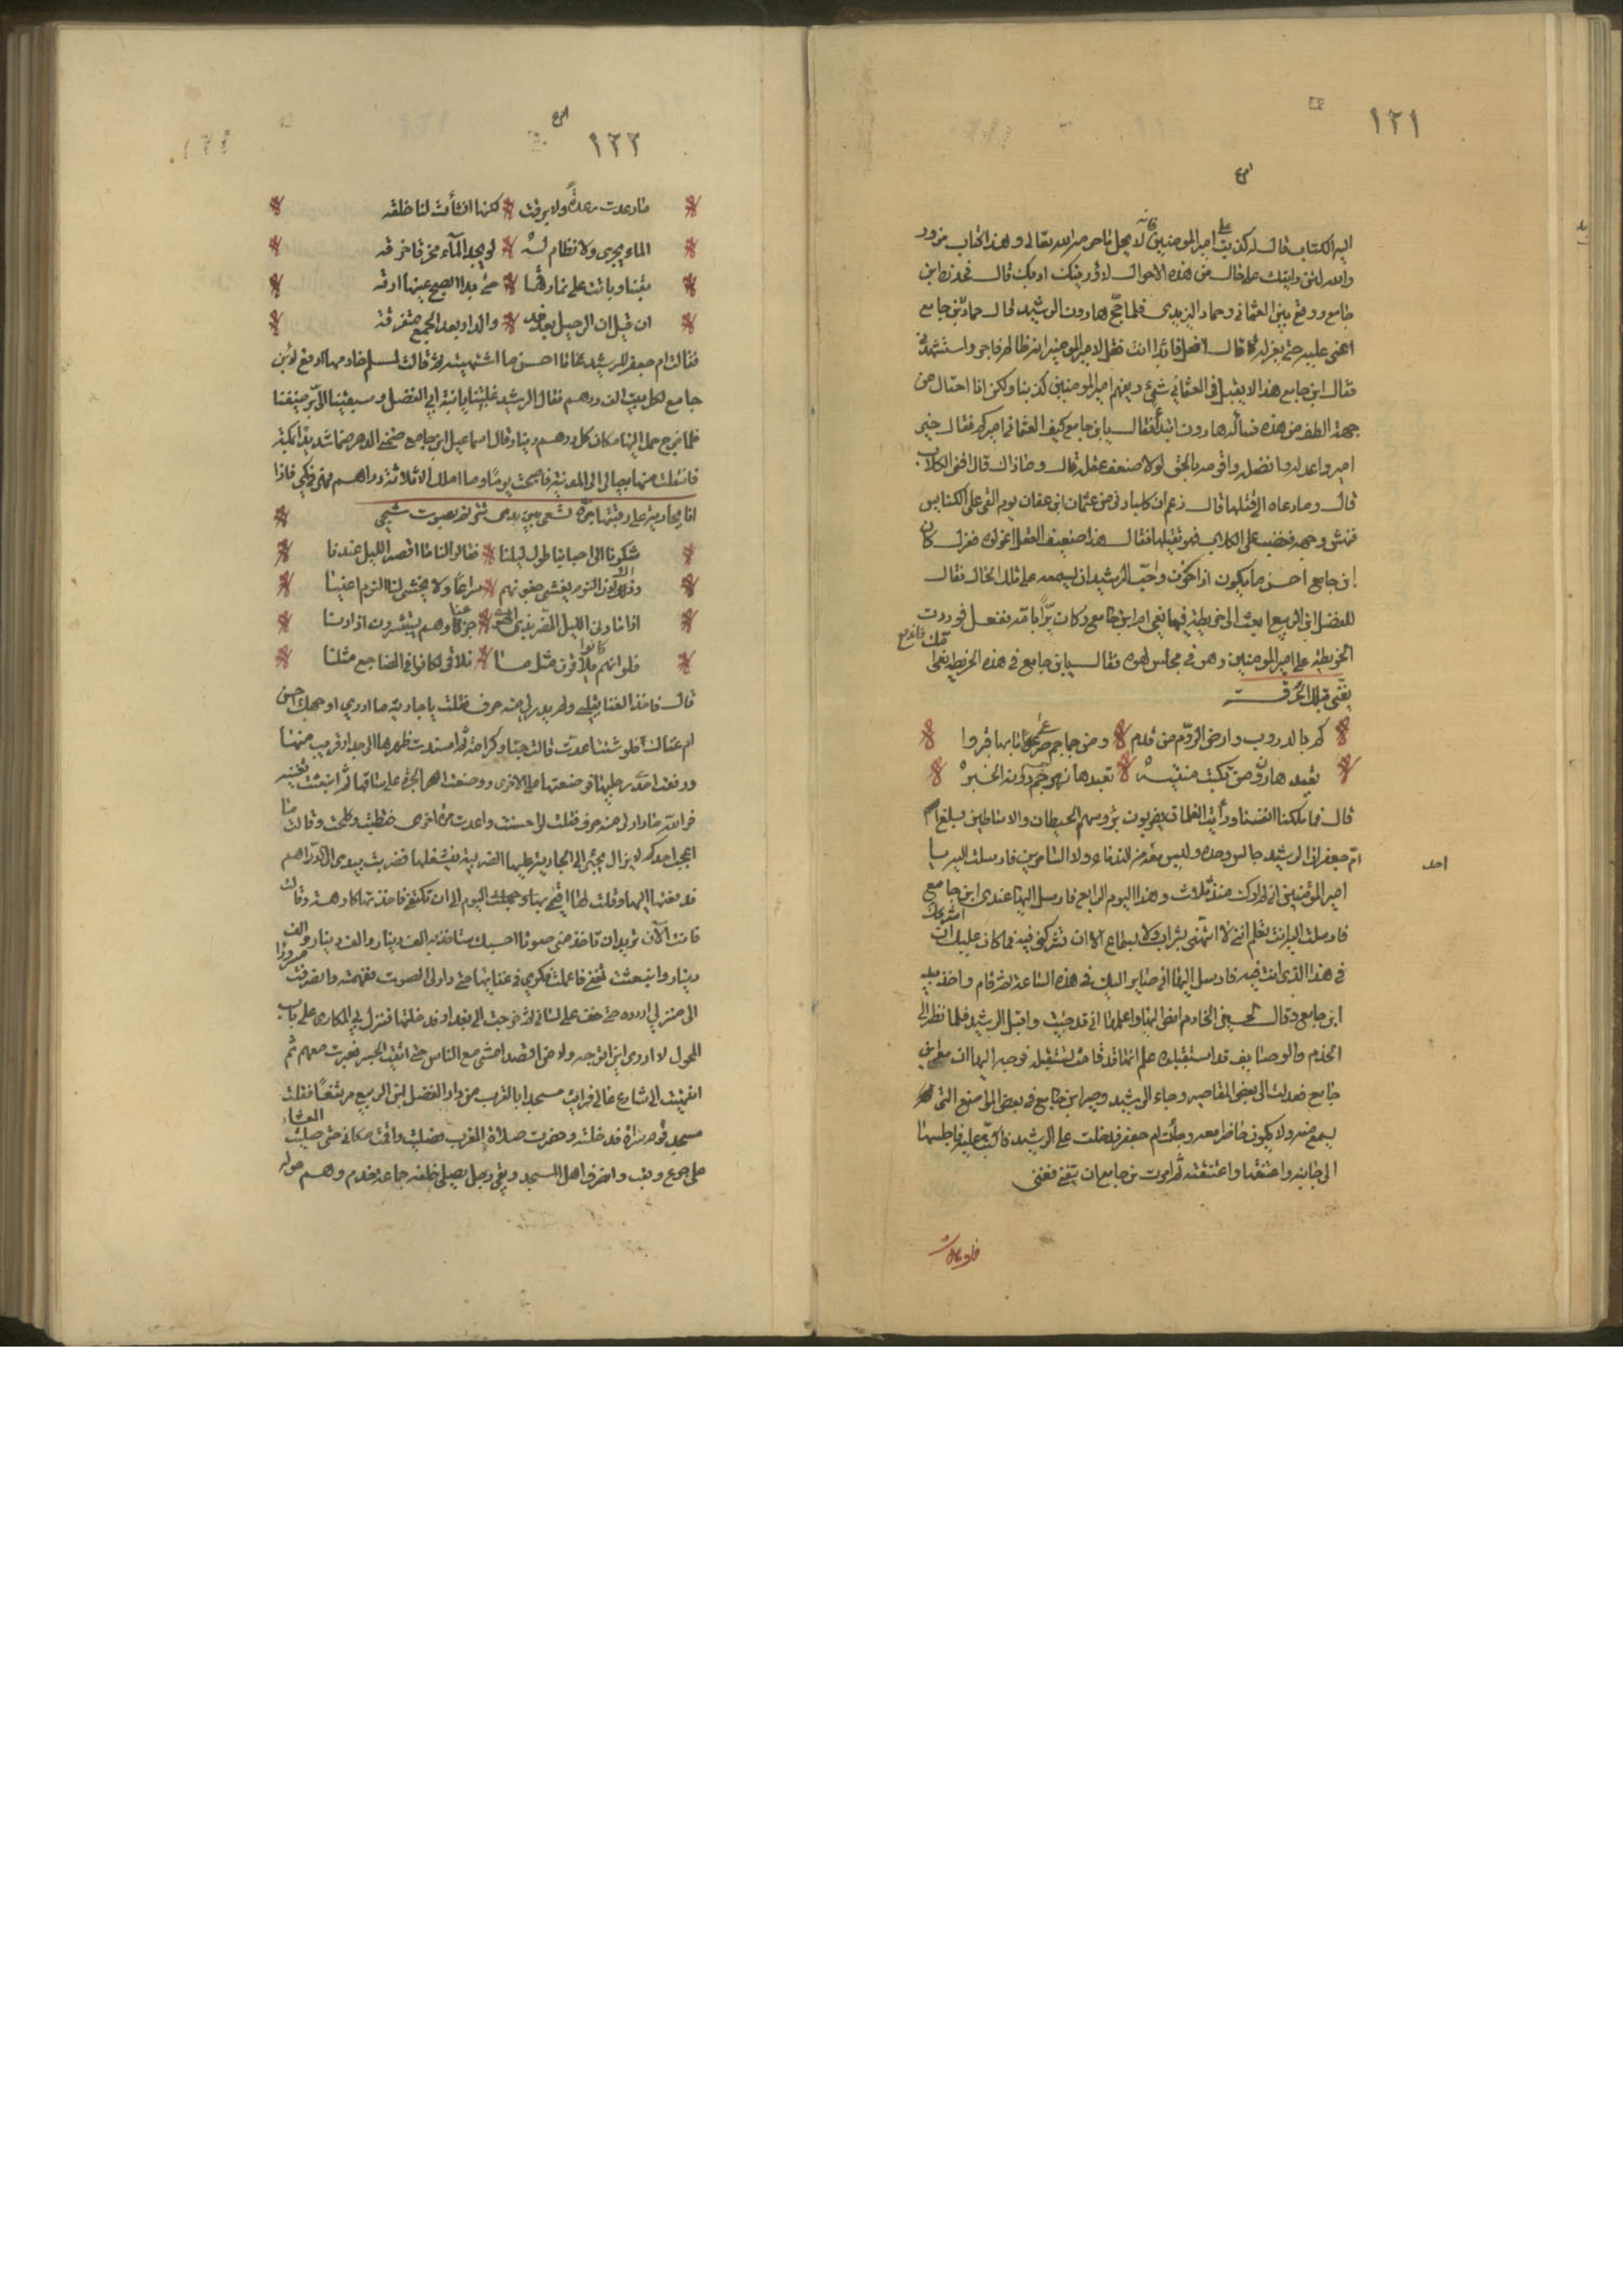 ١٢١
اليه الكتاب قال له كذبت على امير المومنين فانه لا يحل ما حرم الله تعالى ولهذا الكتاب مزور
والله لئن وليتك على حال من هذه الاحوال لاؤدبنك ادبك قال فحذره ابن
جامع ووقع بين العثماني وحماد اليزيدي فلما حج هارون الرشيد قال حماد لابن جامع
اعني عليه حتى يعزله قال افعل فابدا انت فقل لامير المومنين انه ظالم فاجر واستشهدني
فقال ابن جامع هذا لا يقبل في العثماني شيئ ويفهم امير المومنين كذبنا ولكن انا احتال من
جهة الطف من هذه فسأله هارون ابتدأ فقال يا ابن جامع كيف العثماني اميركم فقال خير
امير واعدله وافضله واقومه بالحق لولا ضعف عقله قال وما ذاك قال افنى الكلاب
قال وما دعاه الى قتلها قال زعم ان كلبا دنى من عثمان ابن عفان يوم القي على الكناس
فنهش وجهه فغضب على الكلاب فهو يقتلها فقال هذا ضعيف العقل اعزلوه فعزل كان
ابن جامع احسن ما يكون اذا حزن واحب الرشيد ان يسمعه على تلك الحال فقال
للفضل ابن الربيع ابعث الى خريطة فيها نعي ام ابن جامع وكان برا بامه ففعل فوردت
الخريطة على امير المومنين وهو في مجلس لهوه فقال يا ابن جامع في هذه الخريطة نعي
كم بالدروب وارض الروم من قدم ومن جماجم صرعى ما بها قبروا
بقندهار ومن تكتب منيته بقندهار يرجم دونه الخبر
قال فما ملكنا انفسنا ورأيت الغلمان يضربون برؤسهم الحيطان والاساطين فبلغ
ام جعفر ان الرشيد جالس وحده وليس معه من الندماء ولا السامرين فارسلت اليه يا
احد
امير المؤمنين اني لم ارك منذ ثلاث وهذا اليوم الرابع فارسل اليها عندي ابن جامع
فارسلت اليه انت تعلم انني لا اتهنى بشراب ولا بسماع الا ان تشركني فيه فما كان عليك ان
في هذا الذي انت فيه فارسل اليها اني صاير اليك في هذه الساعة ثم قام واخذ بيد
ابن جامع وقال لحسين الخادم امض اليها واعلمها اني قد جيت واقبل الرشيد فلما نظر الى
الخدم والوصايف قد استقبلوه علم انها قد قامت لتستقبله فوجه اليها ان معي ابن
جامع فعدلت الى بعض المقاصير وجاء الرشيد وصير ابن جامع في بعض المواضع التي
يسمع منه ولا يكون حاضرا معه وجأت ام جعفر فدخلت على الرشيد فاكبت عليه فاجلسها
الى جانبه واعتنقها واعتنقته ثم امرت بن جامع ان يتغنى فغنى
١٢٢
ما رعدت رعدة ولا برقت لكنها انشأت لنا خلقه
الماء يجري ولا نظام له لو يجد الماء مخرقا خرقه
بتنا وباتت على نمارقها حتى بدا الصبح عينها ارقه
ان قيل ان الرحيل بعد غد والدار بعد الجمع متفرقه
فقالت ام جعفر للرشيد ما احسن ما اشتهيته ثم قالت لمسلم خادمها ادفع لابن
جامع لكل بيت الف درهم فقال الرشيد غلبتنا يا ابنة ابي الفضل وسبقتينا الى بر ضيفنا
فلما خرج حمل اليها مكان كل درهم دينار وقال اسماعيل ابن جامع ضمني الدهر ضما شديدا بمكة
فانتقلت منها بعيالي الى المدينة فاصبحت يوما وما املك الا ثلاثة دراهم فهي في كمي فاذا
انا بجارية على رقبتها جرة تسعى بين يدي تترنم بصوت شجي
شكونا الى احبابنا طول ليلنا فقالوا لنا ما اقصر الليل عندنا
وذاك لان النوم يغشى جفونهم سراعا ولا يخشى لنا النوم اعينا
اذا ما دنى الليل المضر بذي الهوى جزعنا وهم يستبشرون اذا دنا
فلو انهم كانوا يلاقون مثل ما نلاقي لكانوا في المضاجع مثلنا
قال فاخذ الغنا بقلبي ولم يدر لي منه حرف فقلت يا جارية ما ادري اوجهك احسن
ام غناك فلو شئت اعدت قالت حبا وكرامة ثم اسندت ظهرها الى جدار قريب منها
ورفعت احدى رجليها فوضعتها على الاخرى ووضعت الجرة على ساقها ثم انبعثت تغنيه
فوالله ما دار لي منه حرف فقلت لها احسنت واعدت مرة اخرى فقطبت وكلحت وقالت ما
اعجب احدكم لا يزال يجئ الى الجارية عليها الضريبة فيشغلها فضربت بيدي الى الدراهم
فدفعتها اليها وقلت لها اقيمي بها وجهك اليوم الى ان نلتقي فاخذتها كارهة وقالت
فانت الآن تريد ان تاخذ مني صوتا احسبك ستاخذ به الف دينار والف دينار والف
دينار وانبعثت تغني فاعملت فكري في غنايها حتى دار لي الصوت وفهمته وانصرفت مسرورا
الى منزلي اردده حتى خف على لساني ثم خرجت الى بغداد فدخلتها فنزل بي المكاري على باب
المحول لا ادري اين اتوجه ولا من اقصد امشي مع الناس حتى اتيت الجسر فعبرت معهم ثم
انتهيت الى شارع عالي فرايت مسجدا بالقرب من دار الفضل ابن الربيع مرتفعا فقلت
مسجد قوم سراة فدخلته وحضرت صلاة المغرب فصليت واقمت مكاني حتى صليت العشاء
على جوع وتعب وانصرف اهل المسجد وبقي رجل يصلي خلفه جماعة خدم وهم حوله